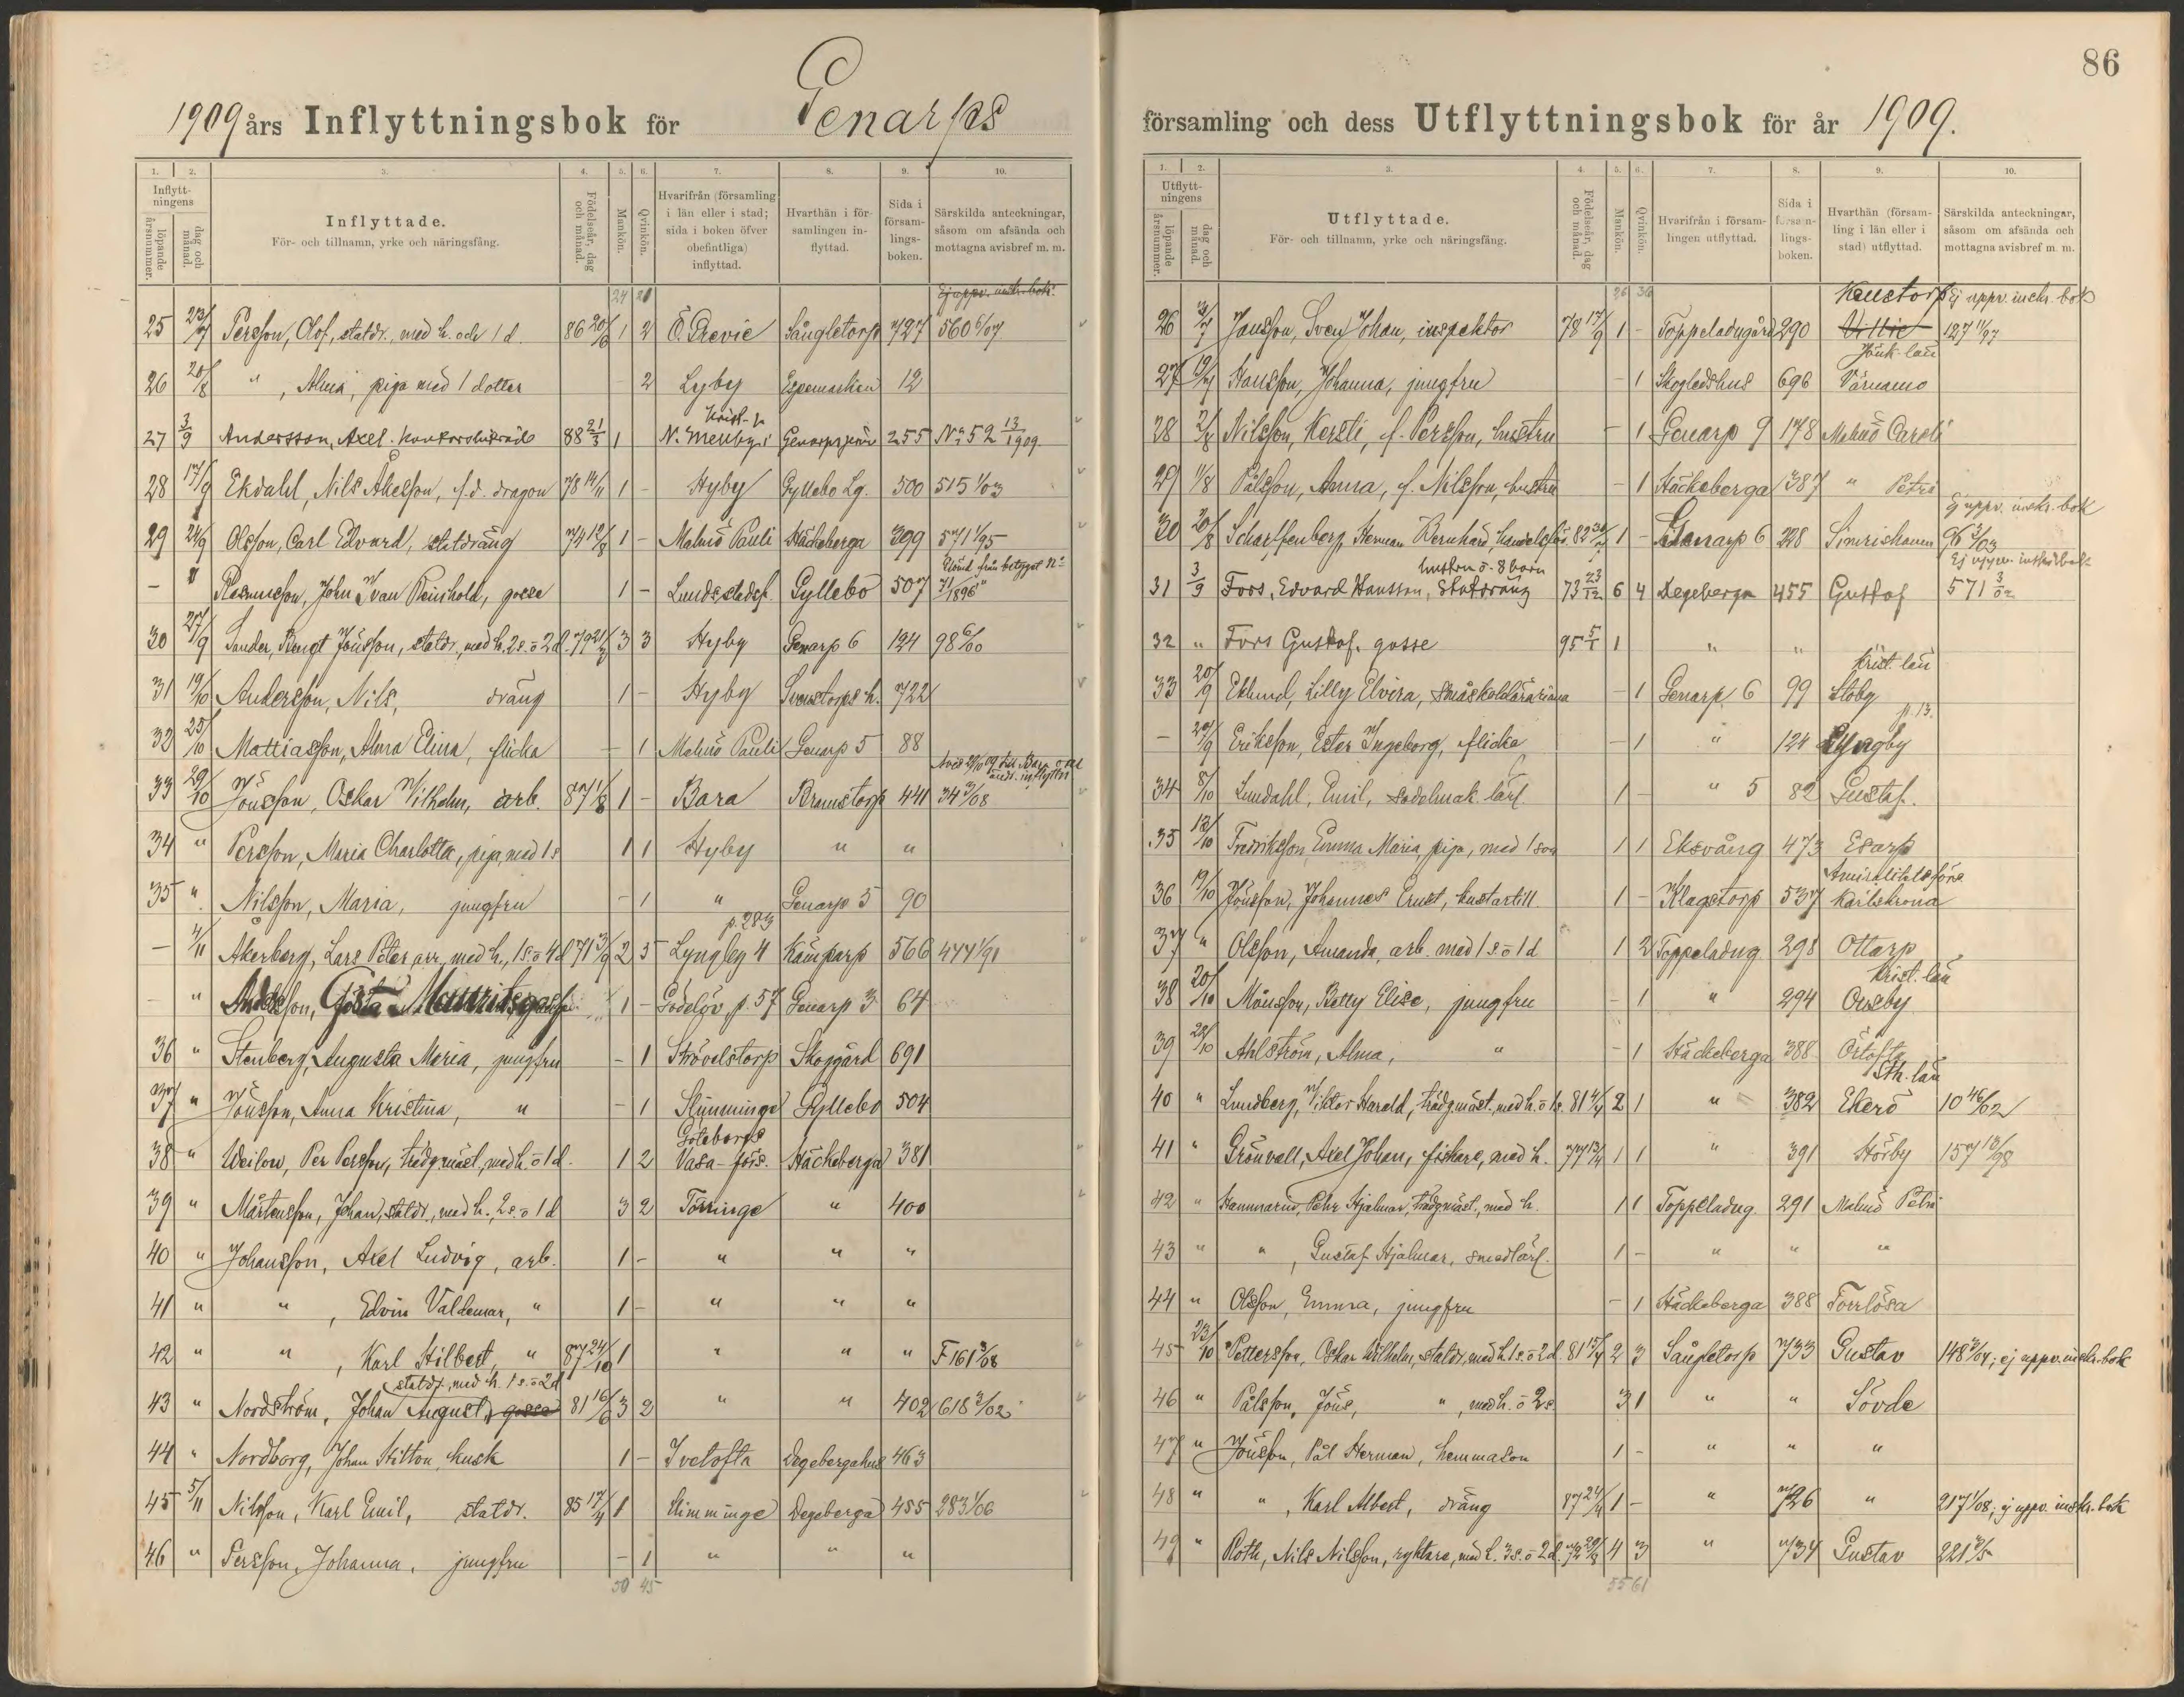 1909 års Inflyttningsbok för Genarps
1. 2. 3. 4. 5. 6. 7. 8. 9. 10.
Inflytt-ningens
löpande årsnummer. dag och månad.
Inflyttade.
För- och tillnamn, yrke och näringsfång.
Födelseår, dag och månad.
Mankön. Qvinkön.
Hvarifrån (församling i län eller i stad; sida i boken öfver obefintliga) inflyttad.
Hvarthän i för-samlingen in-flyttad.
Sida i försam-lings-boken.
Särskilda anteckningar, såsom om afsända och mottagna avisbref m. m.
24 21
Ej uppv. inskr. bok.
25 23/7 Persson, Olof, statdr., med h. och 1 d. 86 20/6 1 2 Ö. Grevie Sångletorp 727 560 6/07
26 20/8 " , Alma, piga med 1 dotter - 2 Lyby Espemarken 12
27 3/9 Andersson, Axel. Kontorsbiträde 88 21/3 1 N. Mellby Genarps 255 No 52 13/1909
28 17/9 Ekdahl, Nils Åkesson, f.d. dragon 78 14/11 1 - Hyby Gyllebo Lg. 500 515 1/03
29 24/9 Olsson, Carl Edvard, statdräng 74 12/8 1 - Malmö Pauli Häckeberga 399 571 1/95
- " Rasmusson, John Ivan Reinhold, gosse 1 - Lunds stadsf. Gyllebo 507
30 27/9 Sander, Bengt Jönsson, statdr., med h. 2 s. o 2 d. 79 3 3 Hyby Genarp 6 124 98 6/00
31 19/10 Andersson, Nils, dräng 1 - Hyby Svenstorps h. 722
32 25/10 Mattiasson, Alma Elina, flicka - 1 Malmö Pauli Genarp 5 88
33 29/10 Jönsson, Oskar Vilhelm, arb. 87 1/8 1 - Bara Bramstorp 441 34 3/08
34 " Persson, Maria Charlotta, piga med 1 s 1 1 Hyby " "
35 " Nilsson, Maria, jungfru - 1 " Genarp 5 90
p. 283
- 4/11 Åkerberg, Lars Peter, arr., med h., 1 s. o 4 d 71 3/9 2 5 Lyngby 4 Kämparp 566 477 1/91
- " Gösta Mauritz 1 - Gödelöv p. 57 Genarp 3 64
36 " Stenberg, Augusta Maria, jungfru - 1 Strövelstorp Skoggård 691
37 " Jönsson, Anna Kristina, " - 1 Slimminge Gyllebo 504
Göteborgs
38 " Weilow, Per Persson, trädg.mäst., med h. o 1 d. 1 2 Vasa-förs. Häckeberga 381
39 " Mårtensson, Johan, statdr., med h., 2 s. o 1 d 3 2 Törringe " 400
40 " Johansson, Axel Ludvig, arb. 1 - " " "
41 " " , Edvin Valdemar, " 1 - " " "
42 " " , Karl Hilbert, " 87 24/10 1 " " " F 161 3/08
statdr. med h. 1 s. o 2 d
43 " Nordström, Johan August, gosse 81 16/6 3 2 " " 402 618 3/02
44 " Nordborg, Johan Hilton, kusk 1 - Ivetofta Degebergahus 463
45 5/11 Nilsson, Karl Emil, statdr. 85 17/4 1 Slimminge Degeberga 455 283 1/06
46 " Persson, Johanna, jungfru - 1 " " "
50 45
86
församling och dess Utflyttningsbok för år 1909.
1. 2. 3. 4. 5. 6. 7. 8. 9. 10.
Utflytt-ningens
löpande årsnummer. dag och månad.
Utflyttade.
För- och tillnamn, yrke och näringsfång.
Födelseår, dag och månad.
Mankön. Qvinkön.
Hvarifrån i försam-lingen utflyttad.
Sida i försam-lings-boken.
Hvarthän (försam-ling i län eller i stad) utflyttad.
Särskilda anteckningar, såsom om afsända och mottagna avisbref m. m.
26 36
Ej uppv. inskr. bok
26 3/7 Jansson, Sven Johan, inspektor 78 17/9 1 - Toppeladugård 290 Villie 127 11/97
Jönk. län
27 19/7 Hansson, Johanna, jungfru - 1 Skogledshus 696 Värnamo
28 2/8 Nilsson, Kersti, f. Persson, hustru - 1 Genarp 9 178 Malmö Caroli
29 11/8 Pålsson, Anna, f. Nilsson, hustru - 1 Häckeberga 387 " Petri
Ej uppv. inskr. bok
30 20/8 Scharffenberg, Herman Bernhard, 82 1 - Genarp 6 228 Simrishamn 96 3/03
hustru o. 8 barn
31 3/9 Fors, Edvard Hansson, Statdräng 73 23/12 6 4 Degeberga 455 Gustaf 571 3/02
32 " Fors Gustaf, gosse 95 5/1 1 " "
Krist. län
33 20/9 Eklund, Lilly Elvira, småskolelärarinna - 1 Genarp 6 99 Stoby
p. 13.
- 29/9 Eriksson, Ester Ingeborg, flicka - 1 " 124 Lyngby
34 8/10 Lundahl, Emil, sadelmak. lärl. 1 - " 5 82 Gustaf.
35 12/10 Fredriksson, Emma Maria, piga, med 1 son 1 1 Eksvång 473 Esarp
Amiralitetsförs.
36 19/10 Jönsson, Johannes Ernst, kustartill. 1 - Klagstorp 537 Karlskrona
37 " Olsson, Amanda, arb. med 1 s. o 1 d 1 2 Toppeladug. 298 Ottarp
Krist. län
38 20/10 Månsson, Betty Elise, jungfru - 1 " 294 Ousby
39 22/10 Ahlström, Alma, " - 1 Häckeberga 388 Örtofta
Sth. län
40 " Lundberg, Viktor Harald, trädg.mäst. med h. o 1 s. 81 4/4 2 1 " 382 Ekerö 10 46/02
41 " Grönvall, Axel Johan, fiskare, med h. 77 13/4 1 1 " 391 Hörby 157 13/98
42 " Hammarin, Pehr Hjalmar, trädg.mäst., med h. 1 1 Toppeladug. 291 Malmö Petri
43 " " , Gustaf Hjalmar, smedlärl. 1 - " " "
44 " Olsson, Emma, jungfru - 1 Häckeberga 388 Torrlösa
45 23/10 Pettersson, Oskar Wilhelm, statdr., med h. 1 s. o 2 d. 81 15/4 2 3 Sångletorp 733 Gustav 148 3/04; ej uppv. inskr. bok
46 " Pålsson, Jöns, " , med h. o 2 s 3 1 " " Sövde
47 " Jönsson, Pål Herman, hemmason 1 - " " "
48 " " , Karl Albert, dräng 87 24/4 1 - " 726 " 217 1/08; ej uppv. inskr. bok
49 " Roth, Nils Nilsson, ryktare, med h. 3 s. o 2 d. 4 3 " 734 Gustav
55 61